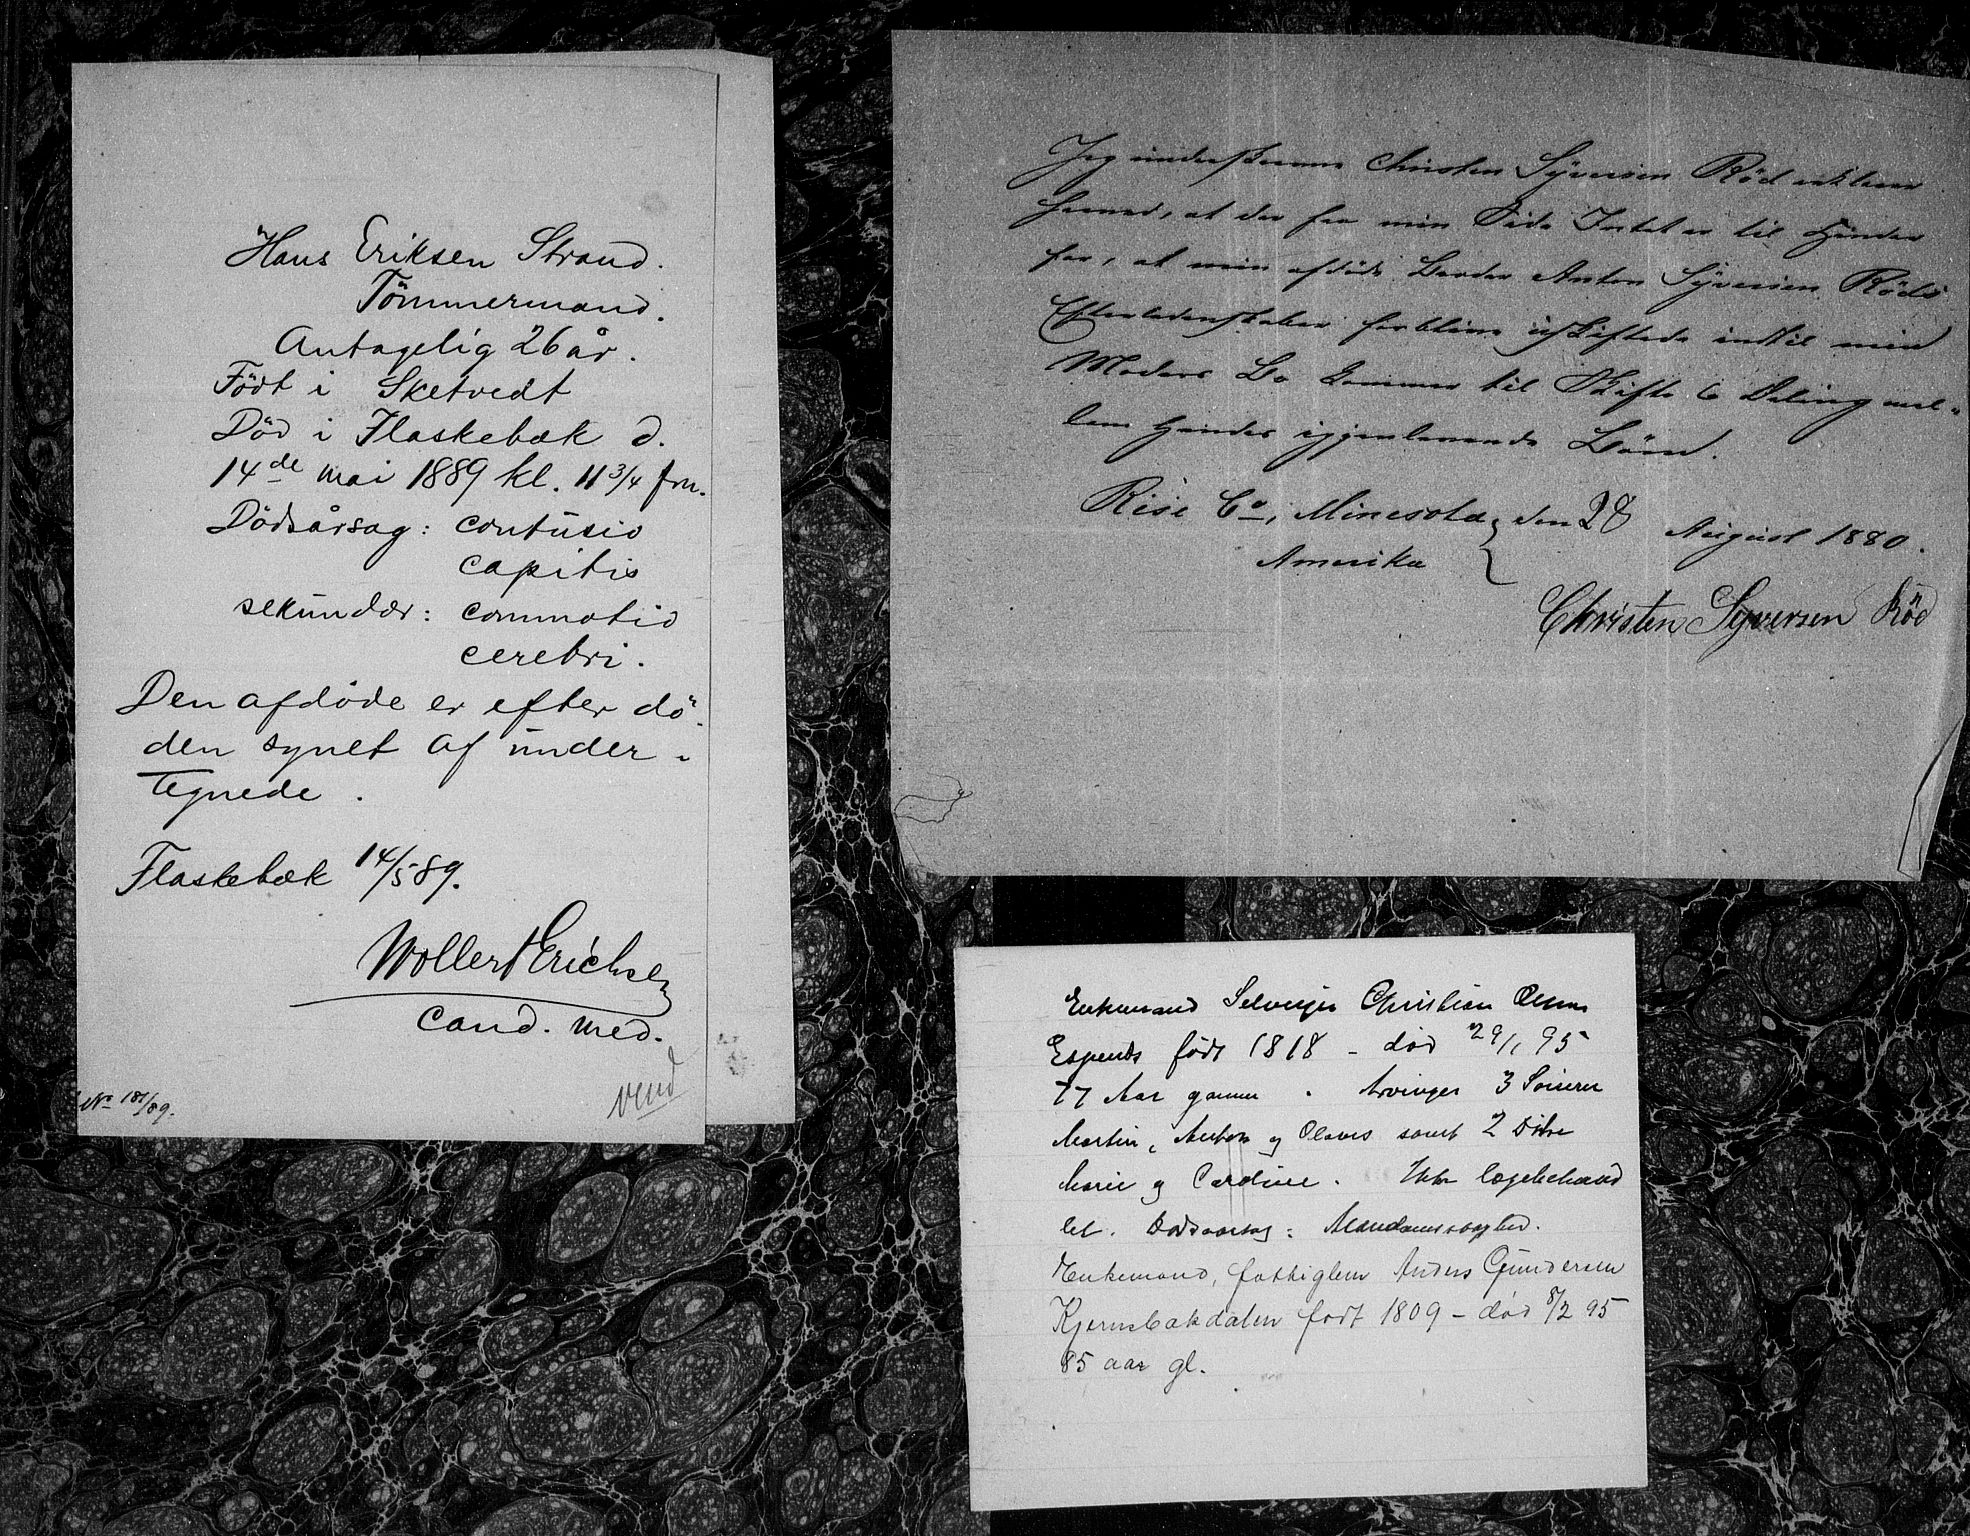 Hans Eriksen Strand.
Tömmermand.
Antagelig 26 år.
Födt i Sketvedt
Död i Flaskebæk d.
14de mai 1889 kl. 11 3/4 fm.
Dödsårsag: contusio
capitis
sekundær: commotio
cerebri.
Den afdöde er efter dö-
den synet af under-
tegnede.
Flaskebæk 14/5 89.
Wollert Erichsen
cand. med.
vend
No 181/89.
Jeg underskrevne Christen Syversen Röd erklærer
herved, at der fra min Side Intet er til Hinder
for, at min afdöde Broder Anton Syversen Röds
Efterladenskaber forblive uskiftede indtil min
Moders Bo kommer til Skifte & Deling mel-
lem Hendes igjenlevende Börn.
Rise Co, Minesota, den 28 August 1880.
Amerika
Christen Syversen Röd
Enkemand Selveier Christian Olsen
født 1818 - död 29/1 95
77 Aar gammel. Arvinger 3 Sönner
Martin, Anton og Olaves samt 2 Dötre
Marie og Cardine. Ikke lægebehand
let. Dødsaarsag: Alderdomssvaghed.
Enkemand, fattiglem Anders Gundersen
Kjernsbakdalen født 1809 - död 8/2 95
85 aar gl.